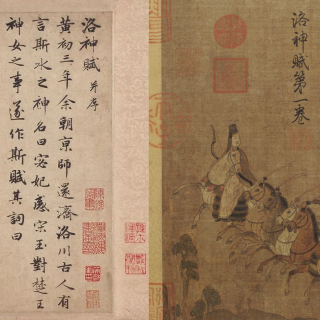 洛神賦第一卷
洛神賦 并序
黄初三年余朝京師還濟洛川古人有
言斯水之神名曰宓妃感宋玉對楚王
神女之事遂作斯賦其詞曰